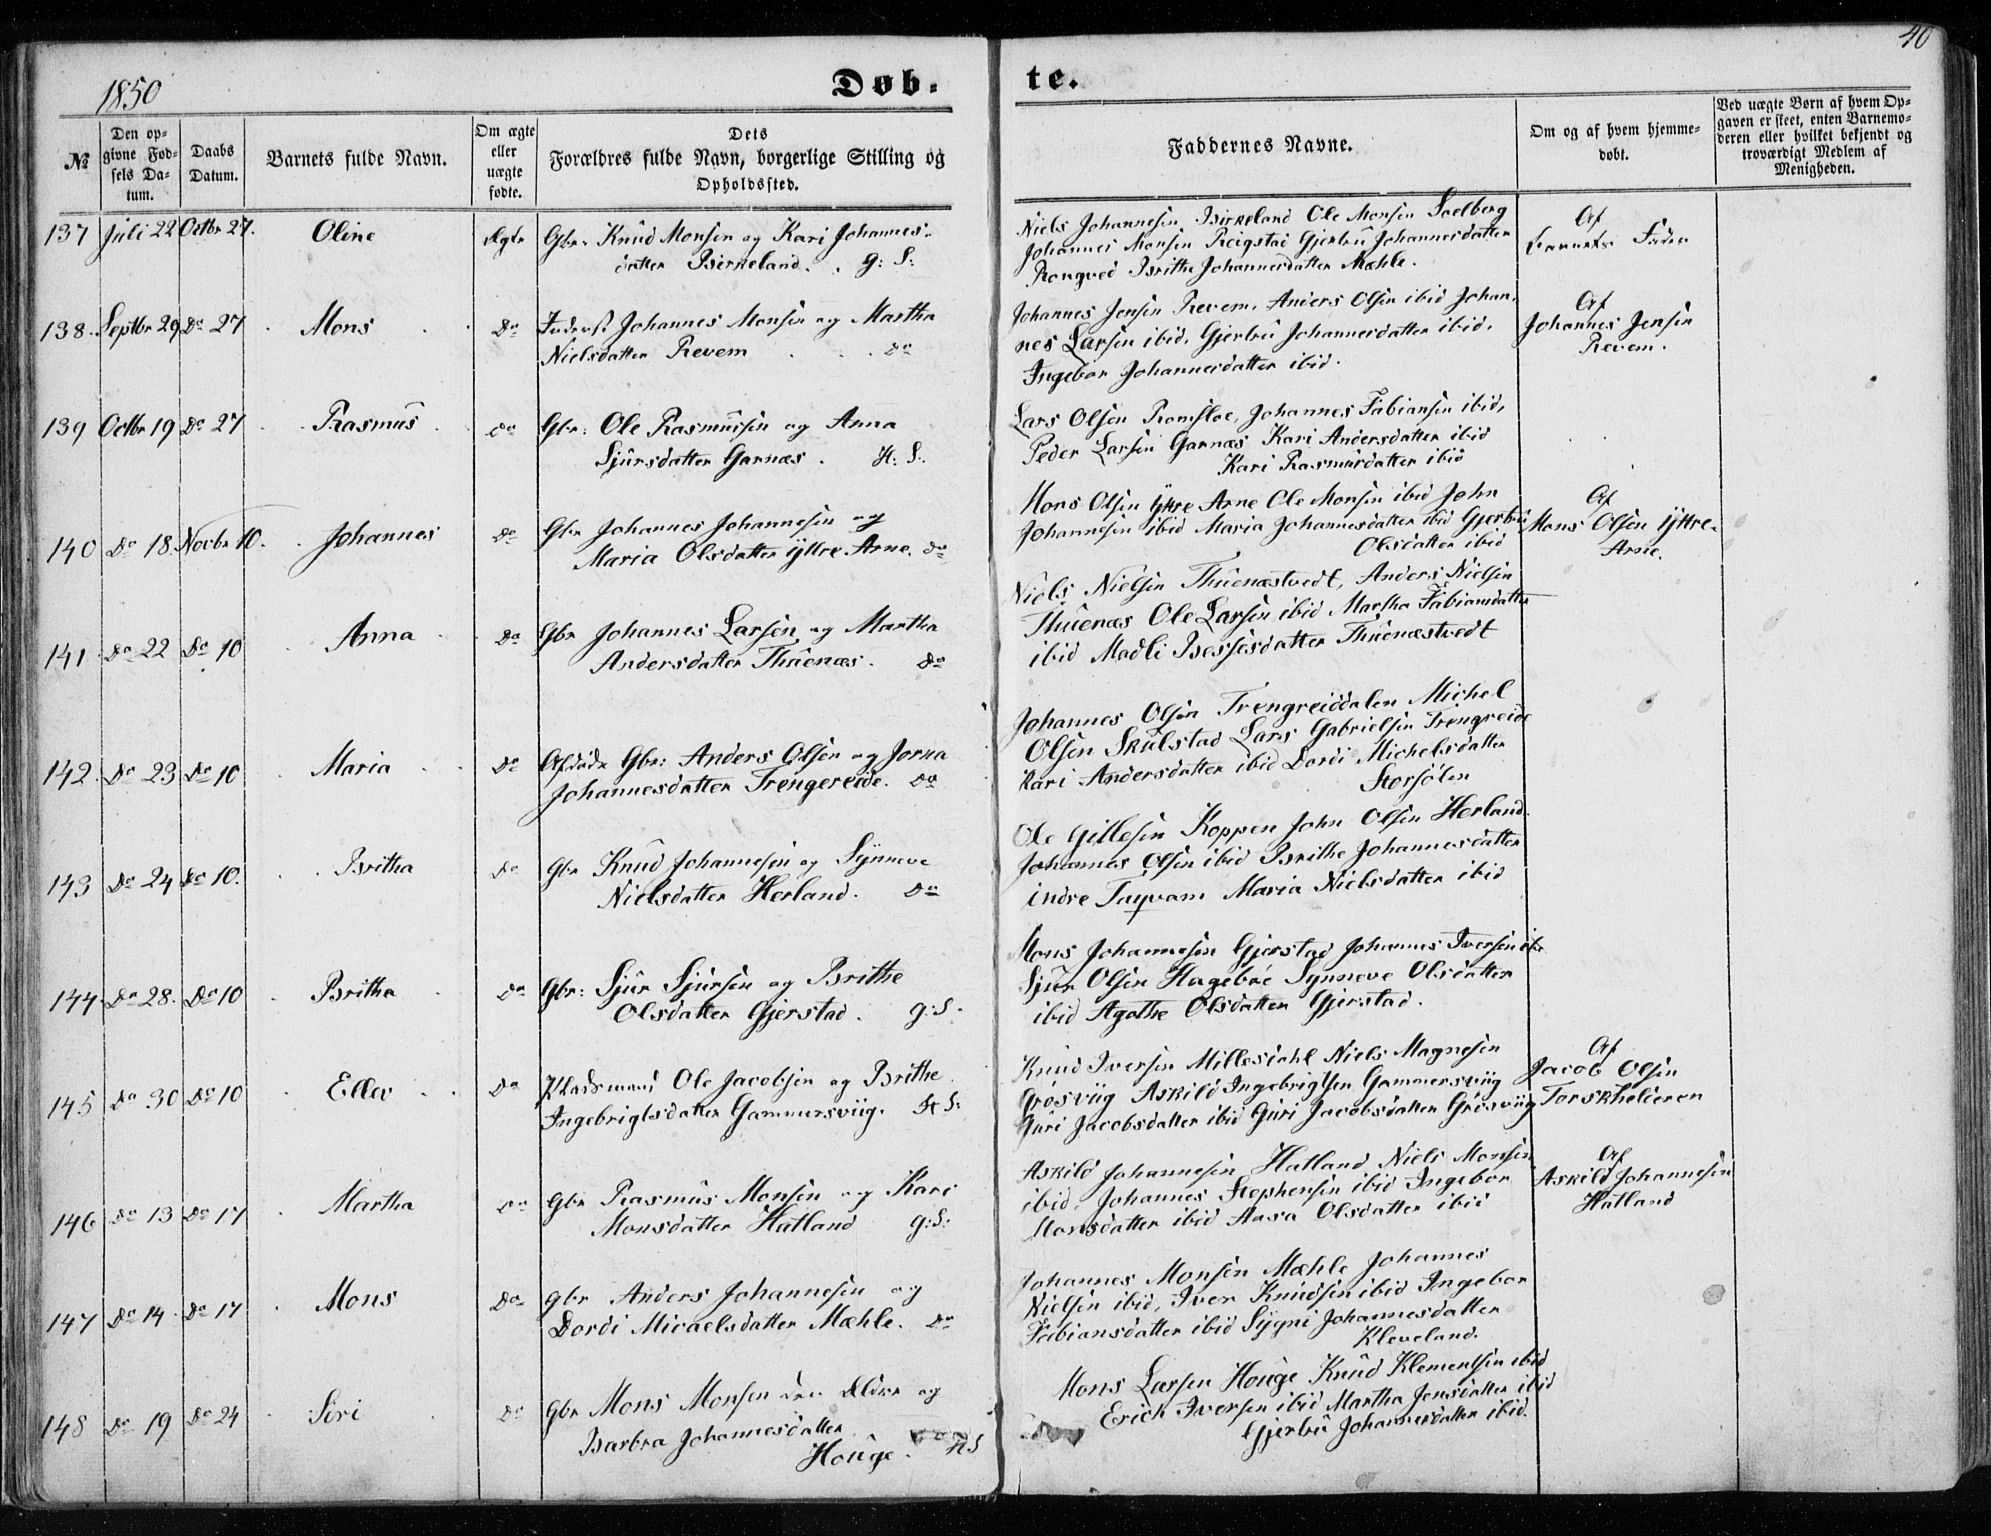 40
1850
Døb- te.
№
Den op-
givne Fød-
sels Da-
tum.
Daabs
Datum.
Barnets fulde Navn.
Om ægte
eller
uægte
fødte.
Dets
Forældres fulde Navn, borgerlige Stilling og
Opholdssted.
Faddernes Navne.
Om og af hvem hjemme-
døbt.
Ved uægte Børn af hvem Op-
gaven er skeet, enten Barnemo-
deren eller hvilket bekjendt og
troværdigt Medlem af
Menigheden.
137 Juli 22 Octbr 27. Oline Ægte Gbr. Knud Monsen og Kari Johannes-
datter Birkeland. G: S:
Niels Johannesen Birkeland Ole Monsen Soelberg
Johannes Monsen Reigstad Gjerbu Johannesdatter
Rongved Brithe Johannesdatter Mæhle.
Af
Barnets Fader
138. Septbr 29 Do 27 Mons Do Johannes Monsen og Martha
Nielsdatter Revem Do
Johannes Jensen Revem, Anders Olsen ibid Johan-
nes Larsen ibid, Gjerbu Johannesdatter ibid,
Ingebor Johannesdatter ibid.
Af
Johannes Jensen
Revem.
139 Octbr 19 Do 27 Rasmus Do Gbr: Ole Rasmussen og Anna
Sjursdatter Garnæs. H: S:
Lars Olsen Romsloe, Johannes Fabiansen ibid,
Peder Larsen Garnæs Kari Andersdatter ibid
Kari Rasmusdatter ibid
140 Do 18 Novbr 10. Johannes Do Gbr Johannes Johannesen og
Maria Olsdatter Yttre Arne. Do
Mons Olsen Yttre Arne Ole Monsen ibid John
Johannesen ibid Maria Johannesdatter ibid Gjerbu
Olsdatter ibid
Af
Mons Olsen Yttre-
Arne.
141 Do 22 Do 10 Anna Do Gbr Johannes Larsen og Martha
Andersdatter Thuenæs. Do
Niels Nielsen Thuenæstvedt, Anders Nielsen
Thuenæs Ole Larsen ibid Martha Fabiansdatter
ibid Madli Bessesdatter Thuenæstvedt
142. Do 23 Do 10 Maria Do Afdøde Gbr: Anders Olsen og Jorna
Johannesdatter Trengereide. Do
Johannes Olsen Trengreiddalen Michel
Olsen Skulstad Lars Gabrielsen Trengreide
Kari Andersdatter ibid Dordi Michelsdatter
Storsølen
143 Do 24 Do 10. Britha Do Gbr Knud Johannesen og Synneve
Nielsdatter Herland. Do
Ole Gillesen Koppen John Olsen Herland
Johannes Olsen ibid Brithe Johannesdatter
indre Taqvam Maria Nielsdatter ibid
144 Do 28. Do 10 Britha Do Gbr: Sjur Sjursen og Brithe
Olsdatter Gjerstad. G: S.
Mons Johannesen Gjerstad Johannes Iversen ibi
Sjur Olsen Hagebøe Synneve Olsdatter
ibid Agathe Olsdatter Gjerstad.
145 Do 30 Do 10 Ellev Do Pladsmand Ole Jacobsen og Brithe
Ingebrigtsdatter Gammersviig. H: S:
Knud Iversen Millesdahl Niels Magnesen
Grøsviig Askild Ingebrigtsen Gammersviig
Guri Jacobsdatter ibid Guri Jacobsdatter Grøsviig
Af
Jacob Olsen
Torskhelleren
146 Do 13 Do 17 Martha Do Gbr Rasmus Monsen og Kari
Monsdatter Hatland G: S:
Askild Johannesen Hatland Niels Monsen
ibid, Johannes Stephensen ibid Ingebor
Monsdatter ibid Aasa Olsdatter ibid
Af
Askild Johannesen
Hatland
147 Do 14 Do 17 Mons Do Gbr Anders Johannesen og
Dordi Micaelsdatter Mæhle. Do
Johannes Monsen Mæhle Johannes
Nielsen ibid, Iver Knudsen ibid Ingebor
Fabiansdatter ibid Sygni Johannesdatter
Kleveland.
148 Do 19 Do 24 Siri Do Gbr Mons Monsen den Ældre og
Barbra Johannesdatter
Houge. H S
Mons Larsen Houge Knud Klementsen ibid
Erich Iversen ibid Martha Jensdatter ibid
Gjerbu Johannesdatter ibid.